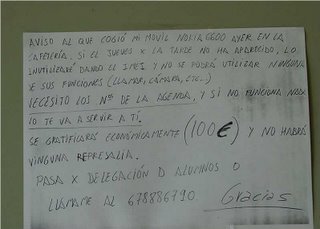 AVISO AL QUE COGIÓ MI MOVIL NOKIA 6600 AYER EN LA
CAFETERÍA. SI EL JUEVES X LA TARDE NO HA APARECIDO, LO
INUTILIZARÉ DANDO EL IMEI Y NO SE PODRÁ UTILIZAR NINGUNA
DE SUS FUNCIONES (LLAMAR, CÁMARA, ETC..)
NECESITO LOS Nºs DE LA AGENDA, Y SI NO FUNCIONA NADA
NO TE VA A SERVIR A TI.
SE GRATIFICARÁ ECONÓMICAMENTE (100€) Y NO HABRÁ
NINGUNA REPRESALIA.
PASA X DELEGACIÓN D ALUMNOS O
LLAMAME AL 678886790 Gracias